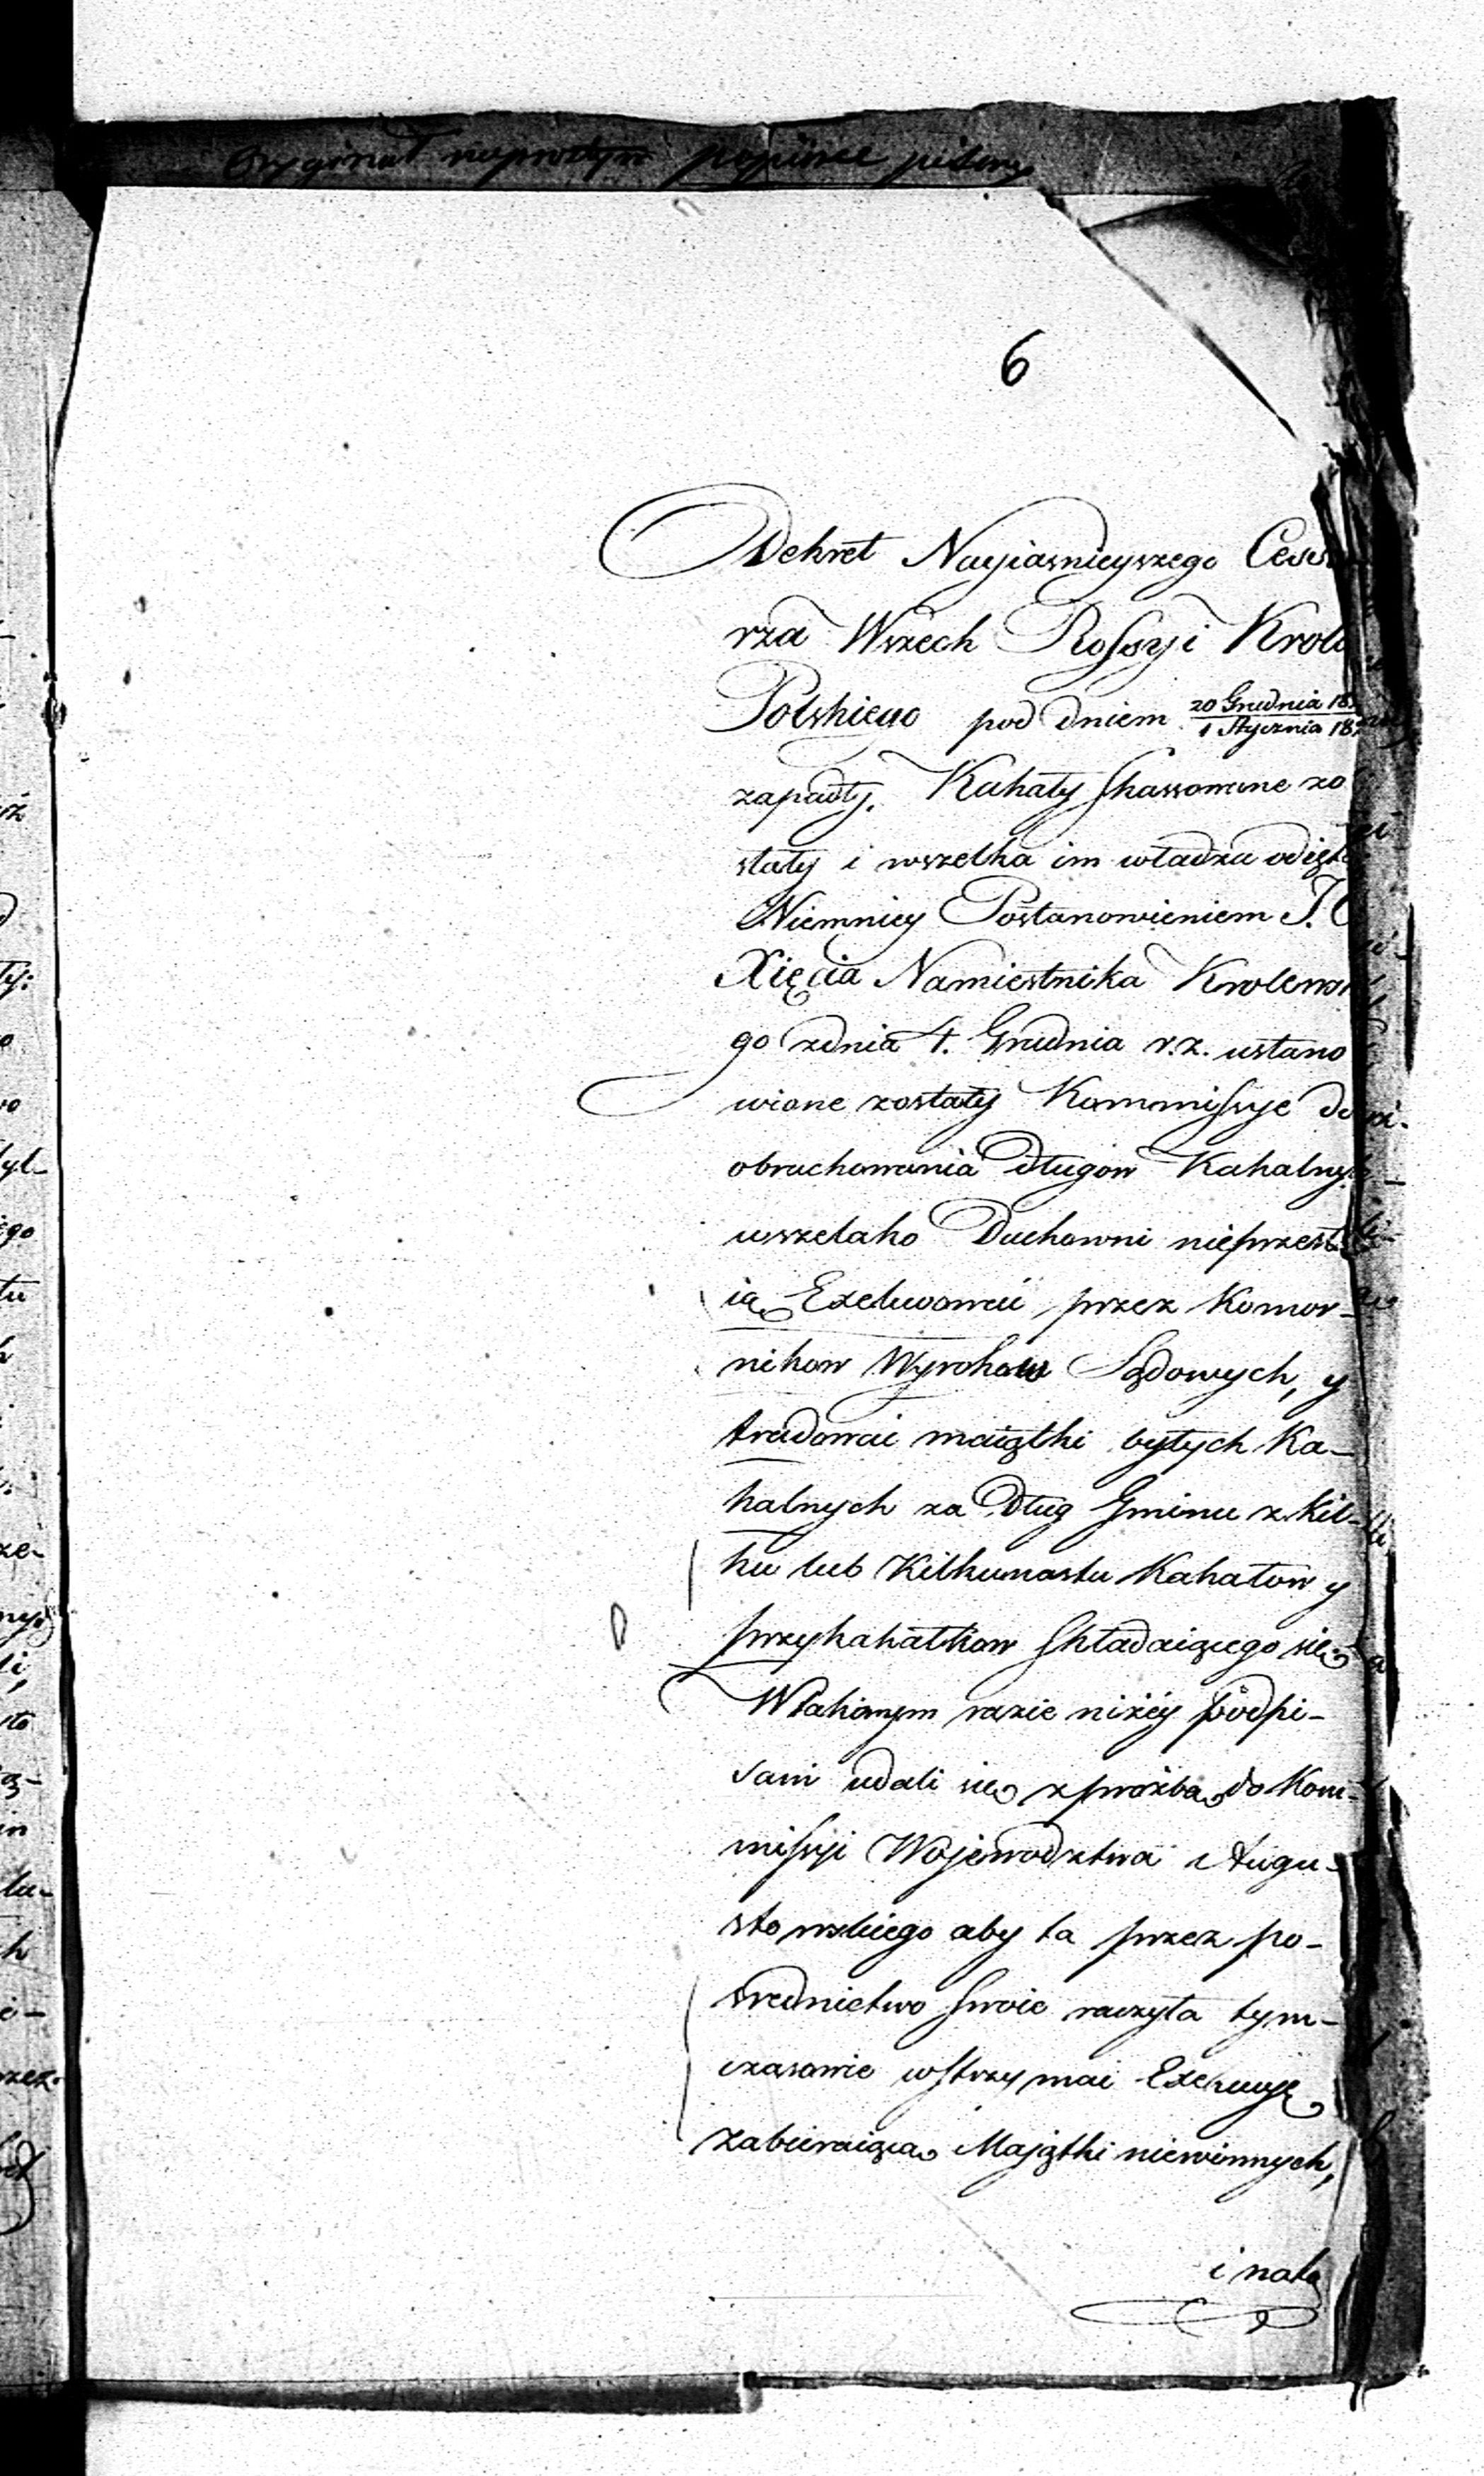 Oryginał na prostym papierze pisany
6
Dekret Nayiasnieyszego Cesa
rza Wszech Rossyi Krola
Polskiego pod dniem 20 Grudnia 18
1 Stycznia 18
zapadły. Kahały skassowane zo
stały i wszelka im władza odięta
Niemniey Postanowieniem J. O
Xięcia Namiestnika Krolewsk
go zdnia 4. Grudnia r.z. ustano
wione zostały Kommissye do
obrachowania długow Kahalnych
wszelako Duchowni nieprzest
ią Exekwować przez Komor-
nikow Wyrokow Sądowych, y
tradować maiątki byłych Ka-
halnych za Dług Gminu z kil-
ku lub Kilkunastu Kahałow y
przykahałkow składaiącego się
Wtakowym razie niżéy podpi-
sani udali się z prożbą do Kom-
missyi Wojewodztwa Augu-
stowskiego aby ta przez po-
srednictwo swoie raczyła tym-
czasowie wstrzymać Exekucyę
zabieraiącą Majątki niewinnych,
i nale